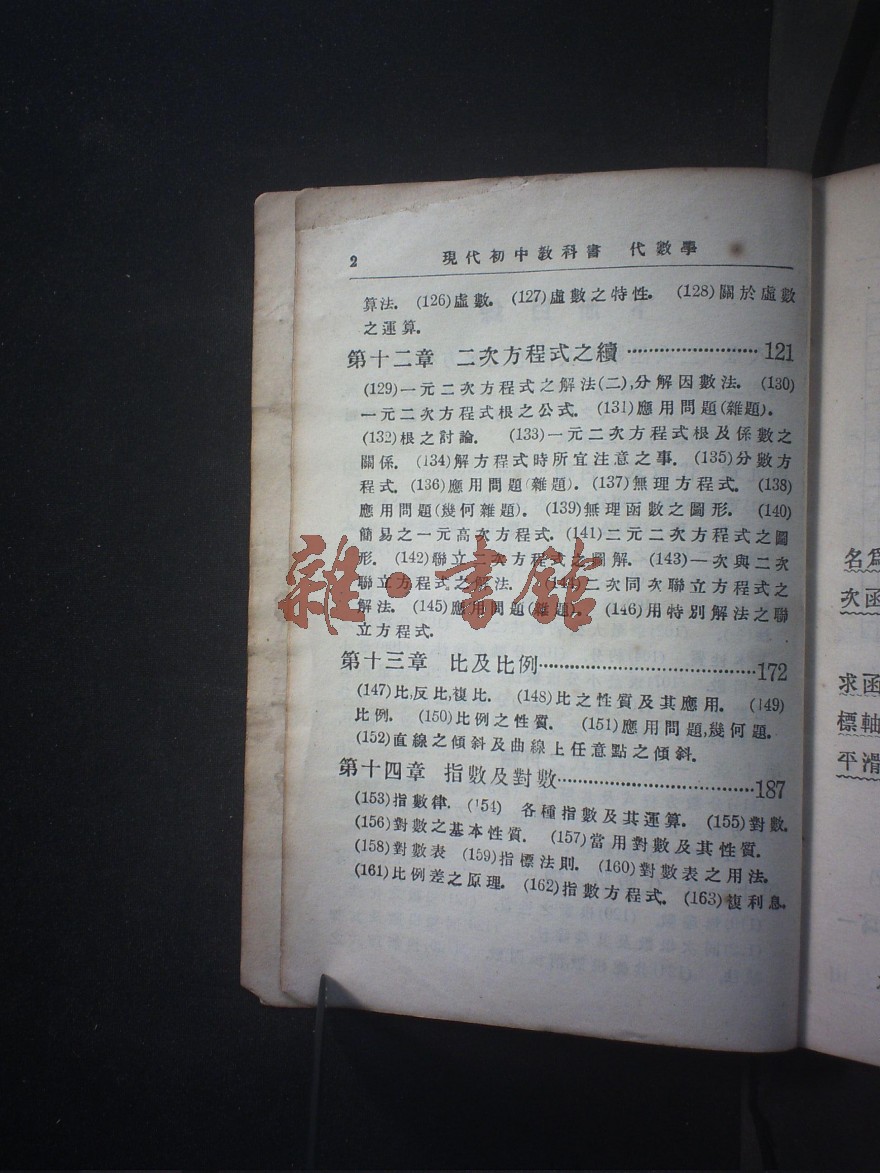 2 現代初中教科書 代數學
算法. (126)虛數. (127)虛數之特性. (128)關於虛數
之運算.
第十二章 二次方程式之續……………………121
(129)一元二次方程式之解法(二),分解因數法. (130)
一元二次方程式根之公式. (131)應用問題(雜題).
(132)根之討論. (133)一元二次方程式根及係數之
關係. (134)解方程式時所宜注意之事. (135)分數方
程式. (136)應用問題(雜題). (137)無理方程式. (138)
應用問題(幾何雜題). (139)無理函數之圖形. (140)
簡易之一元高次方程式. (141)二元二次方程式之圖
形. (142)聯立二次方程式之圖解. (143)一次與二次
聯立方程式之解法. (144)二次同次聯立方程式之
解法. (145)應用問題(雜題). (146)用特別解法之聯
立方程式.
第十三章 比及比例………………………………172
(147)比,反比,複比. (148)比之性質及其應用. (149)
比例. (150)比例之性質. (151)應用問題,幾何題.
(152)直線之傾斜及曲線上任意點之傾斜.
第十四章 指數及對數……………………………187
(153)指數律. (154) 各種指數及其運算. (155)對數.
(156)對數之基本性質. (157)當用對數及其性質.
(158)對數表 (159)指標法則. (160)對數表之用法.
(161)比例差之原理. (162)指數方程式. (163)複利息.
雜·書館
名爲
次函
求函
標軸
平滑